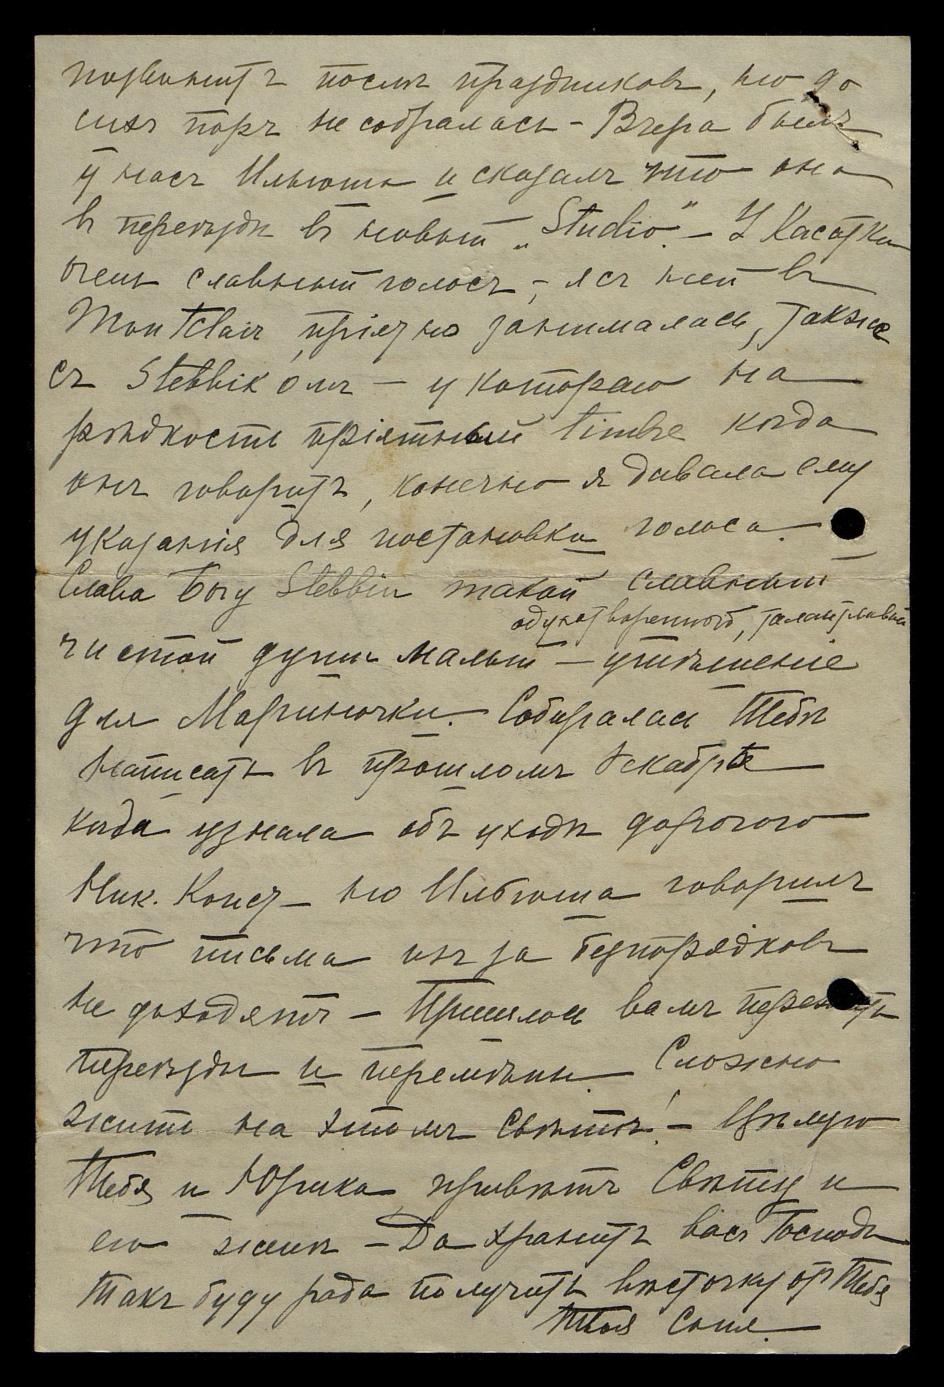 позвонить послѣ праздниковъ, но до
сихъ поръ не собралась – Вчера былъ
у насъ Ильюша и сказалъ что она
въ переѣздѣ въ новый „Studio“. – У Касатки
очень славный голосъ, – я съ ней въ
Montclair пріятно занималась, также
съ Stebbin омъ – у котораго на
рѣдкость пріятный timbre когда
онъ говоритъ, конечно я давала ему
указанія для постановки голоса. –
Слава Богу Stebbin такой славный
одухотворенный, талантливый
чистой души малый – утѣшеніе
для Мариночки. Собиралась Тебѣ
написать въ прошломъ декабрѣ
когда узнала объ уходѣ дорогого
Ник. Конст – но Ильюша говорилъ
что письма изъ за безпорядковъ
не доходятъ – Пришлось вамъ
переѣзды и перемѣны. Сложно
жить на этомъ свѣтѣ! – Цѣлую
Тебя и Юрика, привѣтъ Святу и
его женѣ – Да хранитъ васъ Господь
Такъ буду рада получить вѣсточку от Тебя
Твоя Соня.